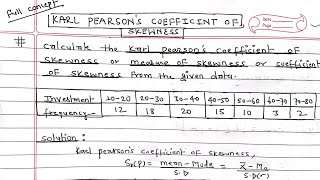 full concept
KARL PEARSON'S COEFFICIENT OF
SKEWNESS
Date
Page
# calculate the karl pearson's coefficient of
skewness or measure of skewness or coefficient
of skewness from the given data.
Investment 10-20 20-30 30-40 40-50 50-60 60-70 70-80
frequency 12 18 20 15 10 3 2
solution :
karl pearson's coefficient of skewness,
Sk(P) = mean - Mode / S.D = X̄ - Mo / S.D(σ)